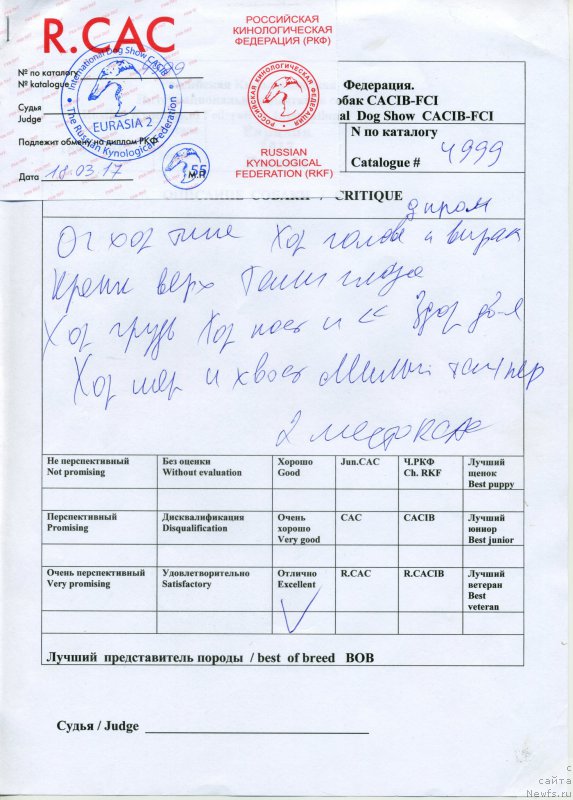 R.CAC
№ по каталогу
№ katalogue 4999
Судья
Judge
Подлежит обмену на диплом РКФ
Дата 18.03.17 М.П.
International Dog Show CACIB
EURASIA 2
The Russian Kynological Federation
55
РОССИЙСКАЯ
КИНОЛОГИЧЕСКАЯ
ФЕДЕРАЦИЯ (РКФ)
РОССИЙСКАЯ КИНОЛОГИЧЕСКАЯ ФЕДЕРАЦИЯ
RUSSIAN
KYNOLOGICAL
FEDERATION (RKF)
Федерация.
обак CACIB-FCI
al Dog Show CACIB-FCI
N по каталогу
Catalogue # 4999
/ CRITIQUE
Оч хор типе Хор голова и
Крепк верх Темн глаза
Хор грудь Хор
Хор шер и хвост Милый темпер
2 место RCAC
Не перспективный
Not promising
Без оценки
Without evaluation
Хорошо
Good
Jun.CAC
Ч.РКФ
Ch. RKF
Лучший
щенок
Best puppy
Перспективный
Promising
Дисквалификация
Disqualification
Очень
хорошо
Very good
CAC
CACIB
Лучший
юниор
Best junior
Очень перспективный
Very promising
Удовлетворительно
Satisfactory
Отлично
Excellent
R.CAC
R.CACIB
Лучший
ветеран
Best
veteran
Лучший представитель породы / best of breed BOB
Судья / Judge
с
сайта
Newfs.ru